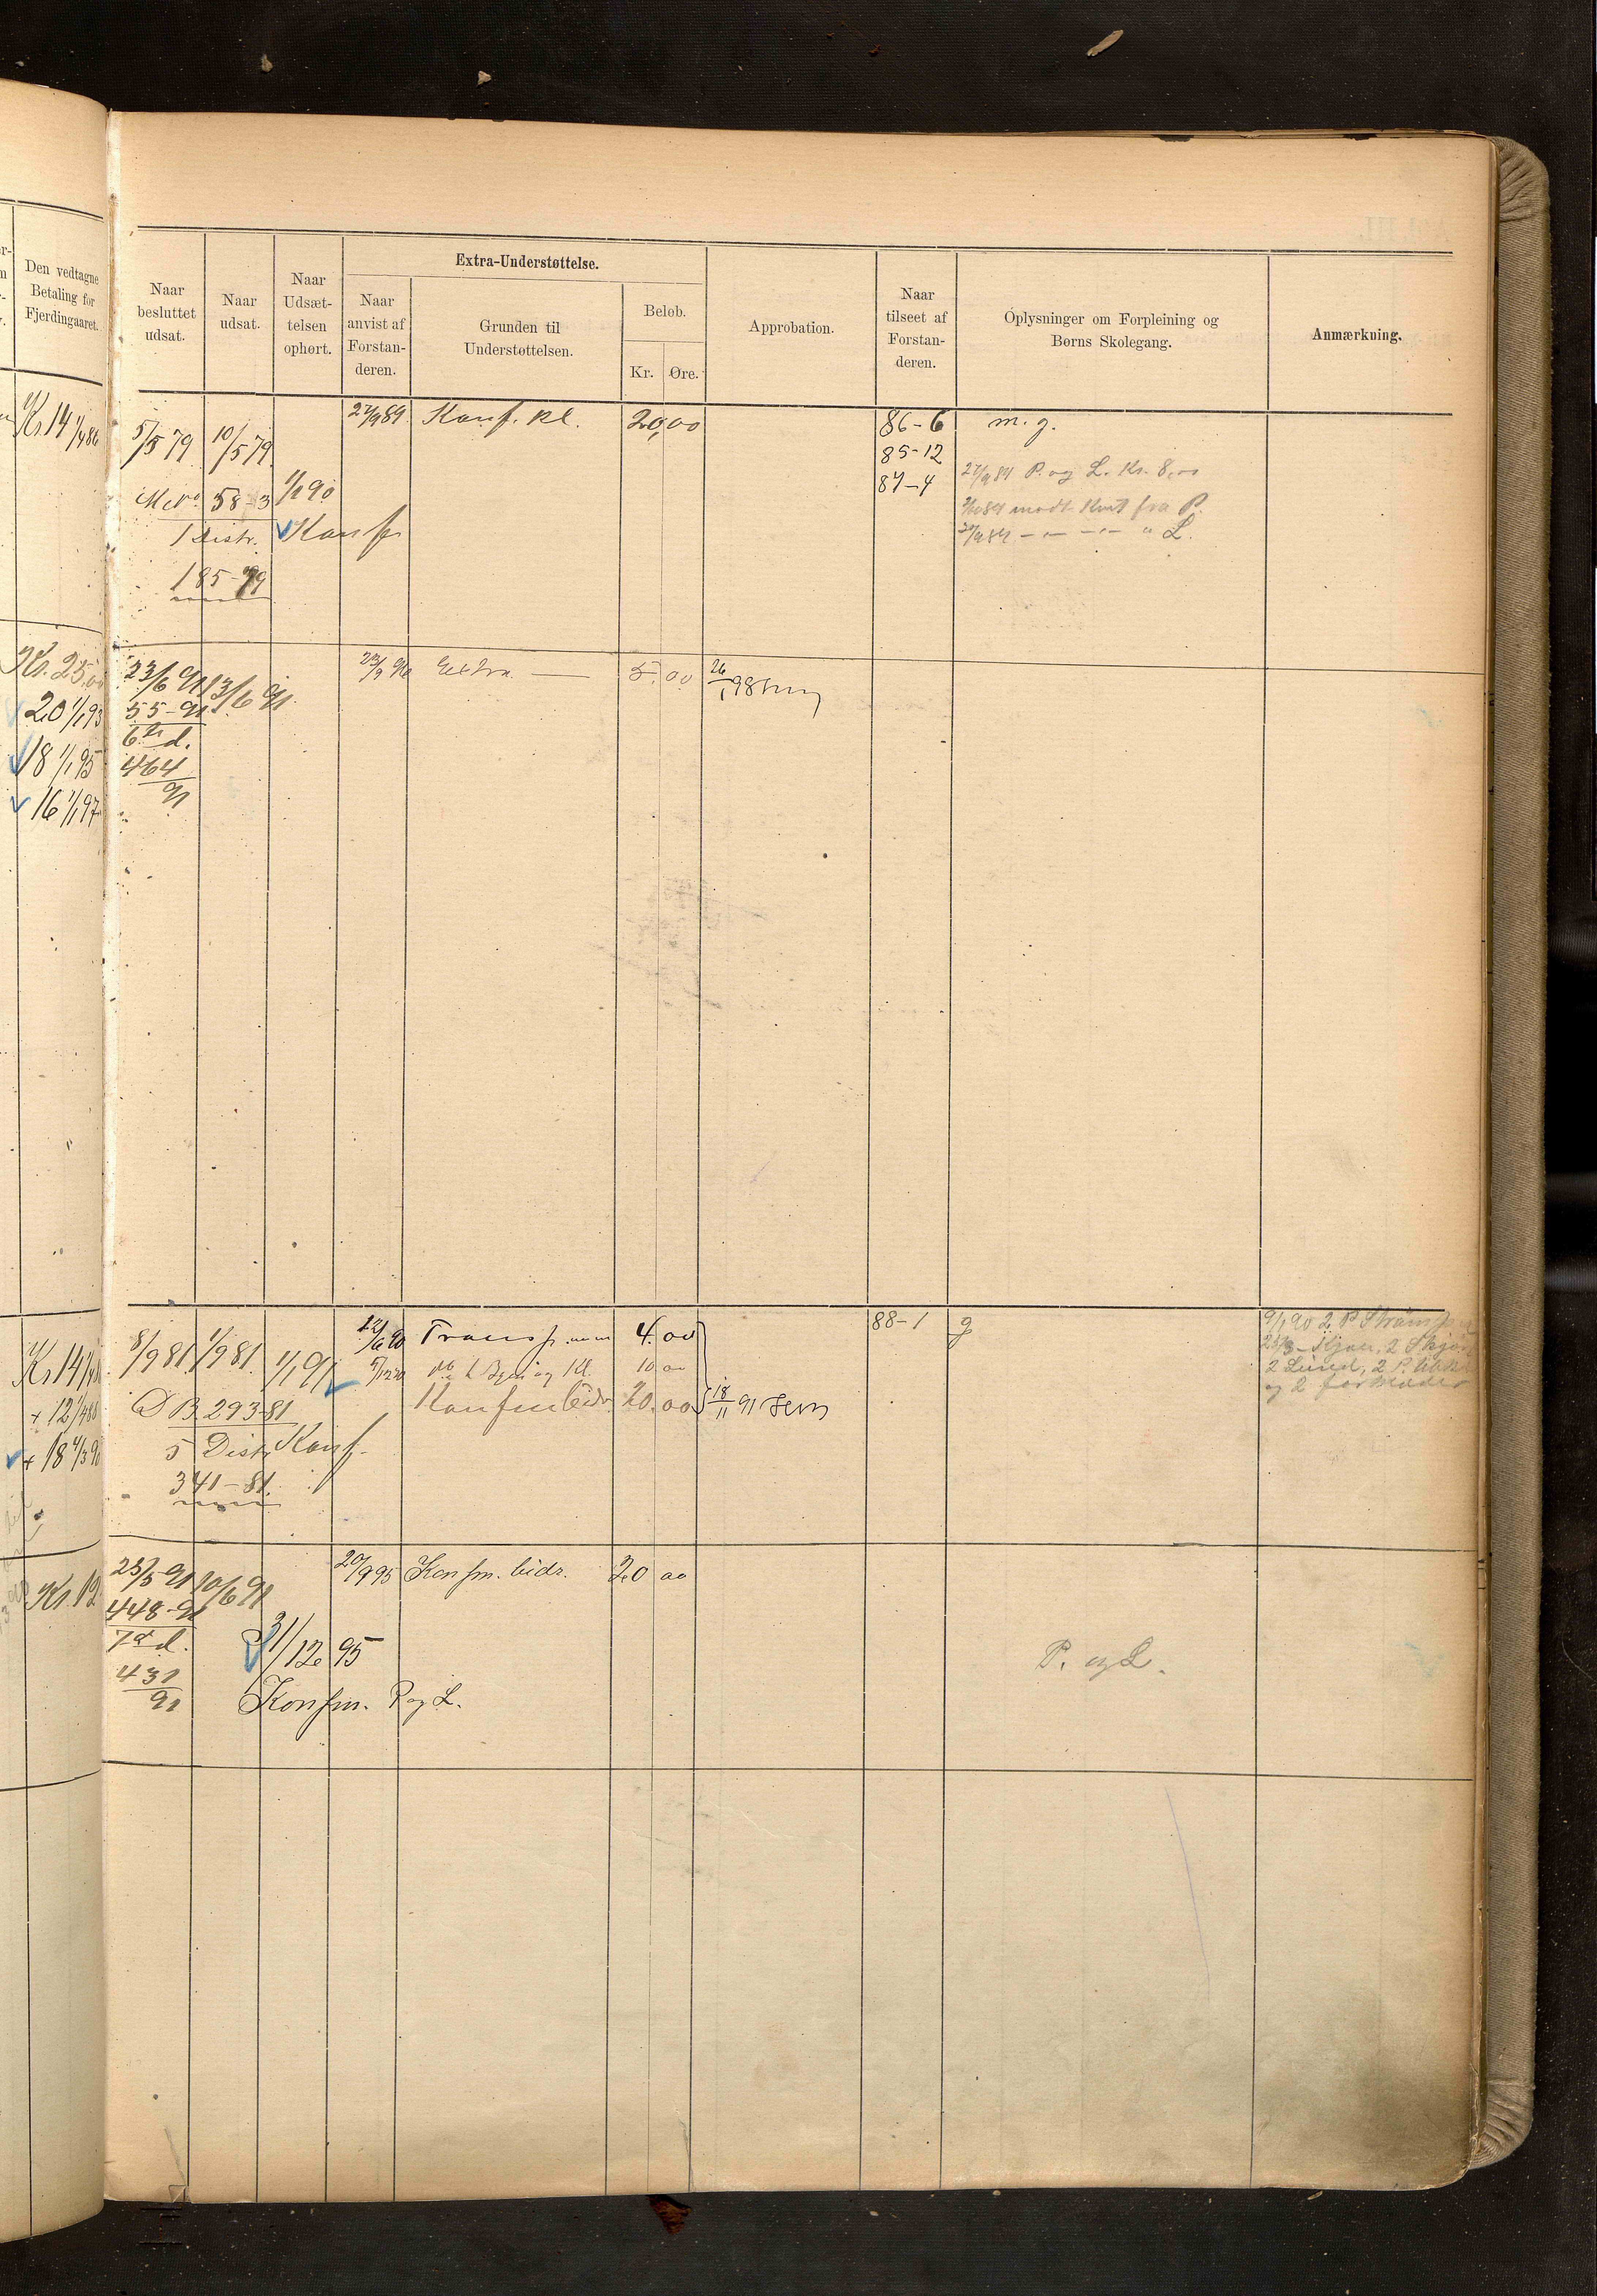 Den vedtagne
Betaling for
Fjerdingaaret.
Kr. 14 1/4 86
Kr. 25,00
20 1/1 93
18 1/1 95
16 1/1 97
Kr. 14
+ 12 1/4 88
+ 18 1/3 90
Kr. 12
Naar
besluttet
udsat.
Naar
udsat.
Naar
Udsæt-
telsen
ophørt.
Extra-Understøttelse.
Naar
anvist af
Forstan-
deren.
Grunden til
Understøttelsen.
Beløb.
Kr. Øre.
Approbation.
Naar
tilseet af
Forstan-
deren.
Oplysninger om Forpleining og
Børns Skolegang.
Anmærkning.
5/5 79 10/5 79 27/9 89 Konf. kl. 20,00 86-6 m. g.
85-12
58-3 1/1 90 87-4 P. og L. Kr. 8,00
1 Distr. Konf modt. Kvit fra P.
185-79 " L.
23/6 91 13/6 91 22/9 96 Extra 5.00 26/1 98
55-91
6te d.
464
91
8/9 81 1/9 81 1/1 91 12/6 90 Transp. 4.00 88-1 g 9/1 90 2 P Strømper
10 00 2 Skjør
D B. 293-81 Konfmbidr. 20.00 18/11 91 2 Lund,
5 Distr. Konf. og 2 forklæder
341-81.
23/5 91 10/6 91 20/9 95 Konfm. bidr. 20 00
448-91
7de d. 31/12 95 P. og L.
431
91 Konfm. P og L.